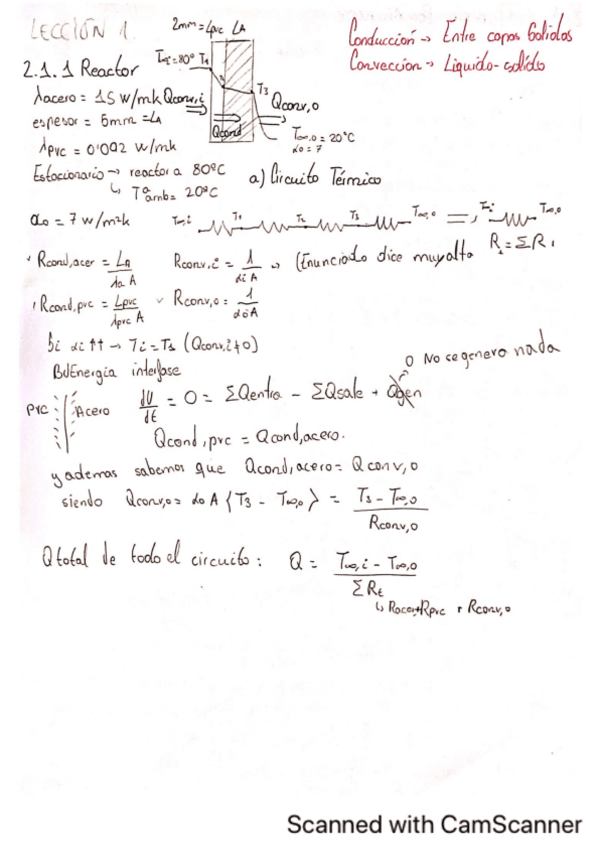 LECCIÓN 1.
2mm = Lpvc LA
Conducción → Entre capas Solidas
Convección → Liquido-solido
2.1.1 Reactor
= 80° T1
T3
λacero = 15 W/mk Qconv,i
Qconv,o
espesor = 6mm = LA
Qcond
T∞,o = 20°C
αo = 7
λpvc = 0'092 W/mk
Estacionario → reactor a 80ºC
a) Circuito Térmico
↳ Tªamb = 20ºC
αo = 7 w/m²k
T∞,i T1 T2 T3 T∞,o = , T∞,i T∞,o
Rcond,acer = LA / λa A
Rconv,i = 1 / αi A → (Enunciado dice muy alta
Rcond,pvc = Lpvc / λpvc A
Rconv,o = 1 / αo A
Si αi ↑↑ → Ti = T1 (Qconv,i ≠ 0)
BdEnergía interfase
0 No se genera nada
PVC Acero
dU/dt = 0 = ΣQentra - ΣQsale + Qgen
Qcond,pvc = Qcond,acero.
y ademas sabemos que Qcond,acero = Qconv,o
siendo Qconv,o = αo A {T3 - T∞,o} = T3 - T∞,o / Rconv,o
Qtotal de todo el circuito: Q = T∞,i - T∞,o / ΣRt
↳ Racer+Rpvc + Rconv,o
Scanned with CamScanner